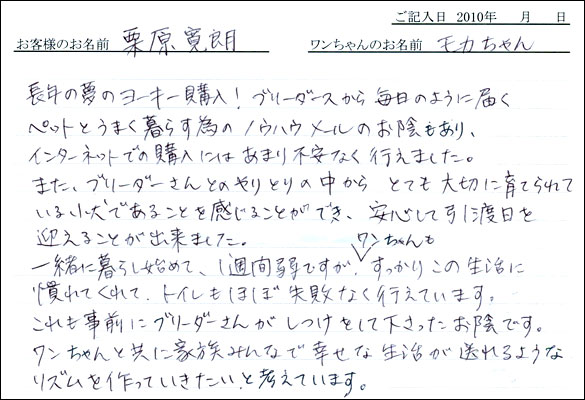 ご記入日 2010年 月 日
お客様のお名前 栗原寛朗 ワンちゃんのお名前 モカちゃん
長年の夢のヨーキー購入！ブリーダースから毎日のように届く
ペットとうまく暮らす為のノウハウメールのお陰もあり、
インターネットでの購入にはあまり不安なく行えました。
また、ブリーダーさんとのやりとりの中から とても大切に育てられて
いる小犬であることを感じることができ、安心して引渡日を
迎えることが出来ました。
ワンちゃんも
一緒に暮らし始めて、1週間弱ですが、すっかりこの生活に
慣れてくれて、トイレもほぼ失敗なく行えています。
これも事前にブリーダーさんがしつけをして下さったお陰です。
ワンちゃんと共に家族みんなで幸せな生活が送れるような
リズムを作っていきたいと考えています。